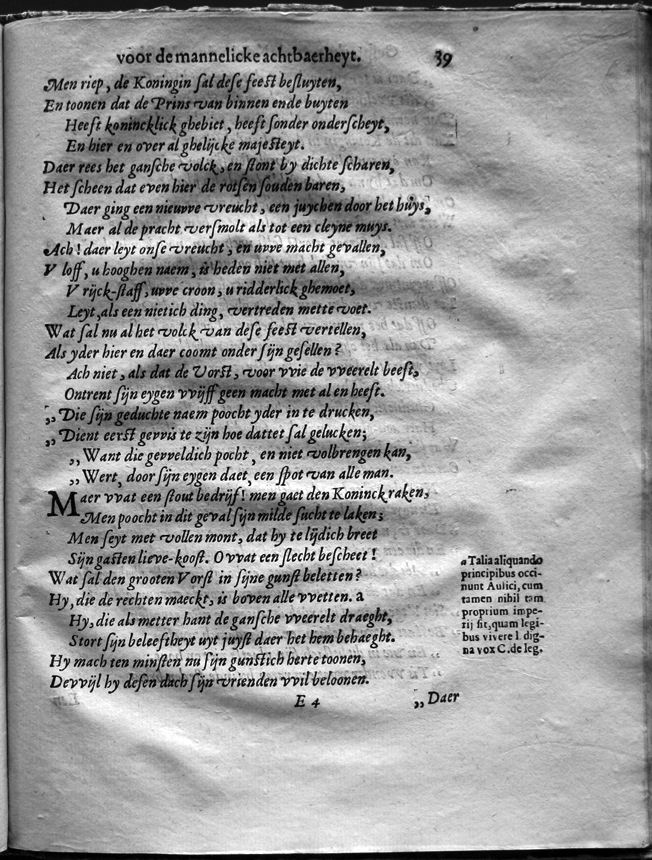 voor de mannelicke achtbaerheyt. 39
Men riep, de Koningin sal dese feest besluyten,
En toonen dat de Prins van binnen ende buyten
Heeft konincklick ghebiet, heeft sonder onderscheyt,
En hier en over al ghelijcke majesteyt.
Daer rees het gansche volck, en stont by dichte scharen,
Het scheen dat even hier de rotsen souden baren,
Daer ging een nieuvve vreucht, een juychen door het huys,
Maer al de pracht versmolt als tot een cleyne muys.
Ach! daer leyt onse vreucht, en uvve macht gevallen,
V loff, u hooghen naem, is heden niet met allen,
V rijck-staff, uvve croon, u ridderlick ghemoet,
Leyt, als een nietich ding, vertreden mette voet.
Wat sal nu al het volck van dese feest vertellen,
Als yder hier en daer coomt onder sijn gesellen?
Ach niet, als dat de Vorst, voor vvie de vveerelt beeft,
Ontrent sijn eygen vvijff geen macht met al en heeft.
,, Die sijn geduchte naem poocht yder in te drucken,
,, Dient eerst gevvis te zijn hoe dattet sal gelucken;
,, Want die gevveldich pocht, en niet volbrengen kan,
,, Wert, door sijn eygen daet, een spot van alle man.
Maer vvat een stout bedrijf! men gaet den Koninck raken,
Men poocht in dit geval sijn milde sucht te laken;
Men seyt met vollen mont, dat hy te lijdich breet
Sijn gasten lieve-koost. O vvat een slecht bescheet!
Wat sal den grooten Vorst in sijne gunst beletten?
Hy, die de rechten maeckt, is boven alle vvetten. a
Hy, die als metter hant de gansche vveerelt draeght,
Stort sijn beleeftheyt uyt juyst daer het hem behaeght.
Hy mach ten minsten nu sijn gunstich herte toonen,
Devvijl hy desen dach sijn vrienden vvil beloonen.
a Talia aliquando
principibus occi-
nunt Aulici, cum
tamen nihil tam
proprium impe-
rij sit, quam legi-
bus vivere l. dig-
na vox C. de leg.
E 4 ,, Daer